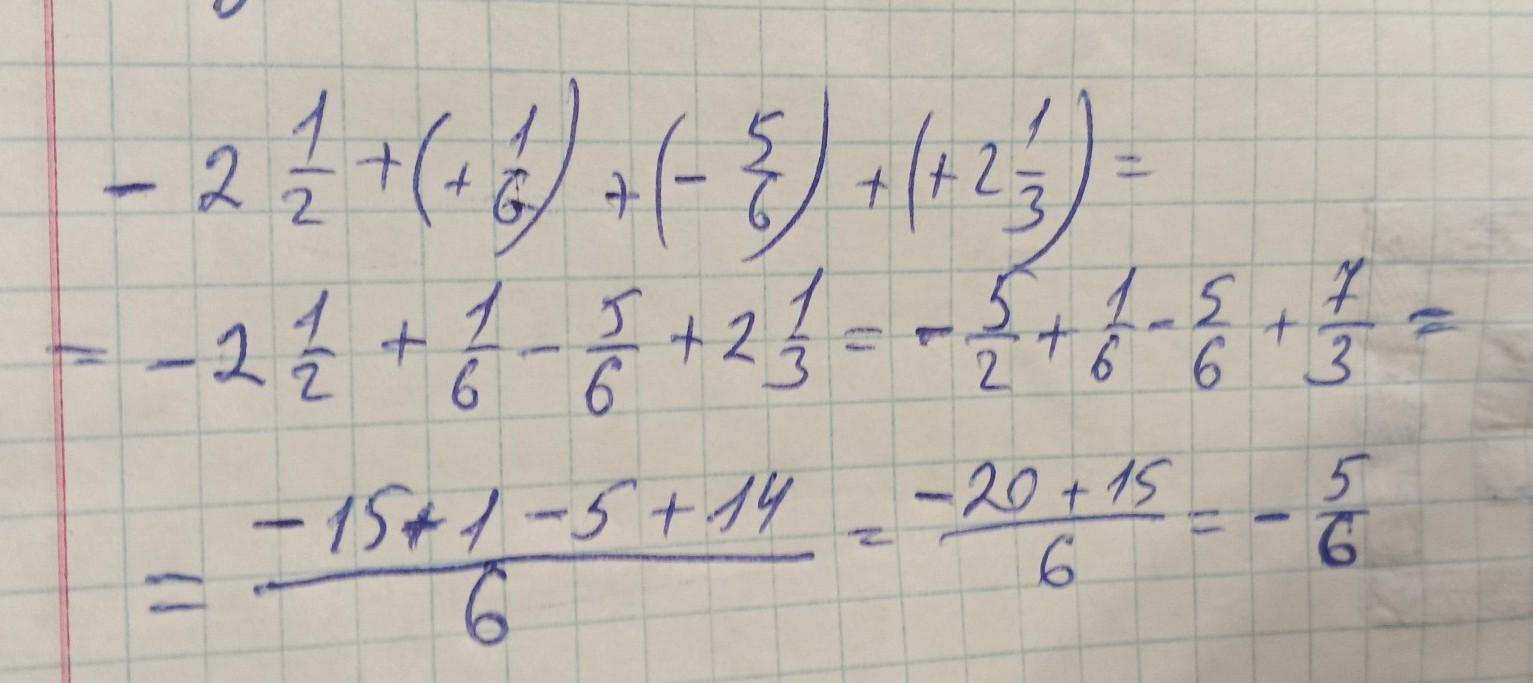 - 2 1/2 + (+ 1/6) + (- 5/6) + (+ 2 1/3) =
= - 2 1/2 + 1/6 - 5/6 + 2 1/3 = - 5/2 + 1/6 - 5/6 + 7/3 =
= (-15 + 1 - 5 + 14)/6 = (-20 + 15)/6 = - 5/6